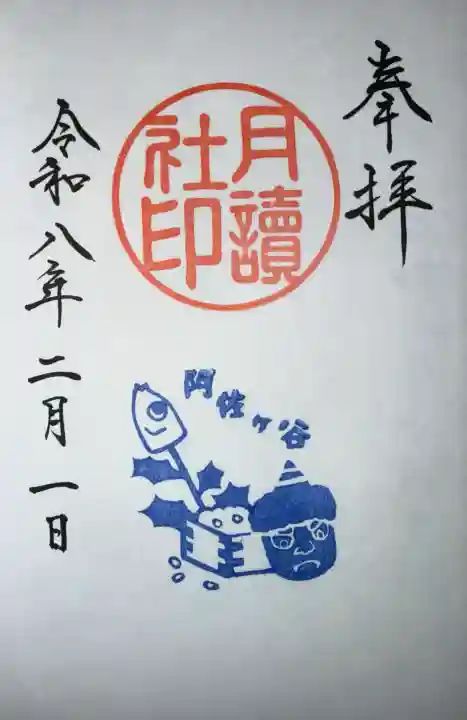 奉拝
月讀
社印
阿佐ヶ谷
令和八年二月一日